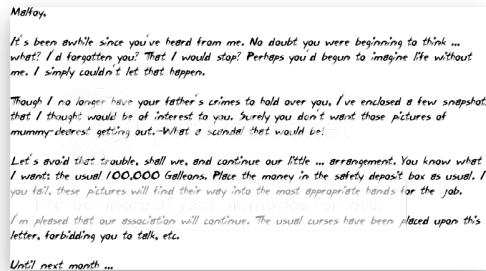 Malfoy,
It's been awhile since you've heard from me. No doubt you were beginning to think ...
what? I'd forgotten you? That I would stop? Perhaps you'd begun to imagine life without
me. I simply couldn't let that happen.
Though I no longer have your father's crimes to hold over you, I've enclosed a few snapshot
that I thought would be of interest to you. Surely you don't want those pictures of
mummy-dearest getting out. What a scandal that would be!
Let's avoid that trouble, shall we, and continue our little ... arrangement. You know what
I want: the usual 100,000 Galleons. Place the money in the safety deposit box as usual. I
you fail, these pictures will find their way into the most appropriate hands for the job.
I'm pleased that our association will continue. The usual curses have been placed upon this
letter, forbidding you to talk, etc.
Until next month ...